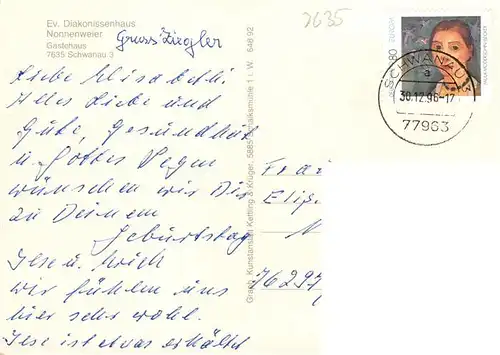 Ev. Diakonissenhaus
Nonnenweier
Gästehaus
7635 Schwanau 3
Gruss Ziegler
7635
Liebe Elisabeth
Alles Liebe und
Gute, Gesundheit
u. Gottes Segen
wünschen wir Dir
zu Deinem
Geburtstag
Ilse u. Erich
wir fühlen uns
hier sehr wohl.
Ilse ist etwas erkältet
Graph. Kunstanstalt Kettling & Krüger, 5885 Schalksmühle 1 i. W. 648 92
80
SCHWANAU
a
30.12.96-17
77963
76297